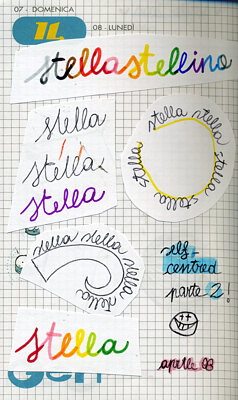 07 - DOMENICA
08 - LUNEDÌ
stellastellina
stella
stella
stella
stella stella stella stella stella stella
stella stella stella stella
self
centred
parte 2!
stella
aprile 03